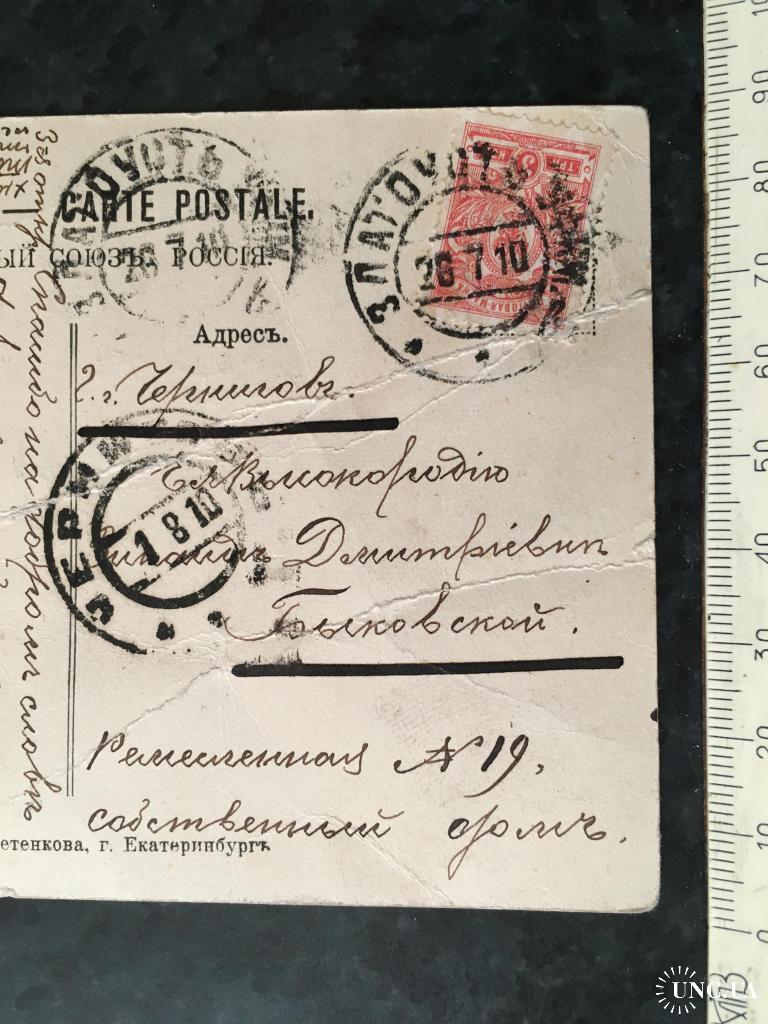 CARTE POSTALE.
ый союзъ. РОССІЯ.
ЗЛАТОУСТЪ
26 7 10
ЗЛАТОУСТЪ
26 7 10
ТРИ
3
Адресъ.
г. Черниговъ.
Ея Высокородію
Дмитріевнѣ
Быковской.
ЧЕРНИ
1 8 10
Ремесленная №19,
собственный домъ.
етенкова, г. Екатеринбургъ
спасибо на добромъ словѣ
0 10 20 30 40 50 60 70 80 90 10
UNC.UA